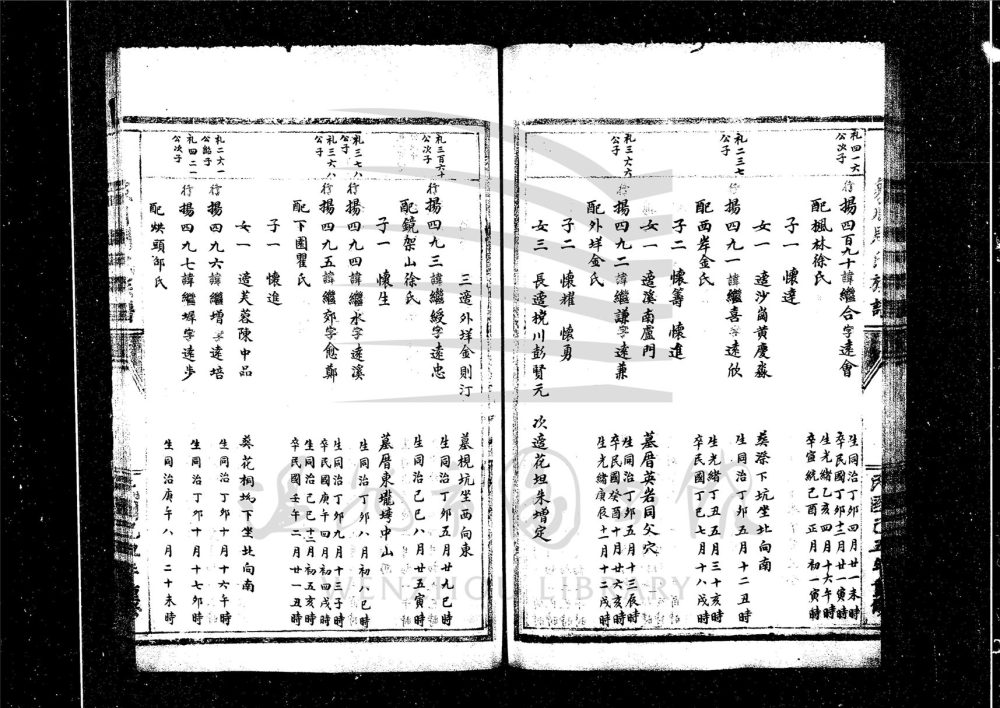 礼四一六公次子
行揚四百九十諱繼合字遠會
生同治丁卯四月廿一未時
卒民國丁卯十二月廿寅時
配楓林徐氏
生光緒乙亥四月十六午時
卒宣統己酉正月初一寅時
子一 懷達
葵濚下坑坐北向南
女一 適沙崗黃慶淼
礼二三七公子
行揚四九一諱繼喜字遠欣
生同治丁卯五月十二丑時
配西岸金氏
生光緒丁丑五月三十亥時
卒民國丁巳七月十八戌時
子二 懷籌 懷進
女一 適溪南盧門
墓厝英岩同父穴
礼三六六公子
行揚四九二諱繼謙字遠兼
生同治丁卯五月十三辰時
卒民國癸酉十月廿六亥時
配外垟金氏
生光緒庚辰十一月十二戌時
子二 懷耀 懷勇
女三 長適梘川彭賢元 次適花坦朱增定
三適外垟金則汀
墓梘坑坐西向東
礼三百六十公次子
行揚四九三諱繼綬字遠忠
生同治丁卯五月廿九巳時
配鏡架山徐氏
生同治己巳八月廿五寅時
子一 懷生
墓厝東壠塆中山
礼三七八公子
行揚四九四諱繼水字遠溪
生同治丁卯八月初八巳時
礼三六八公子
行揚四九五諱繼郊字愈鄭
生同治丁卯九月十三子時
卒民國庚午四月初四戌時
配下園瞿氏
生同治己巳十二月初五亥時
卒民國壬午二月廿一丑時
子一 懷進
女一 適芙蓉陳中品
葵花桐坳下坐北向南
礼二六一公繼子
行揚四九六諱繼增字遠培
生同治丁卯十月十六午時
礼四二一公次子
行揚四九七諱繼墀字遠步
生同治丁卯十月十七卯時
配烘頭邵氏
生同治庚午八月二十未時
WENZHOU LIBRARY